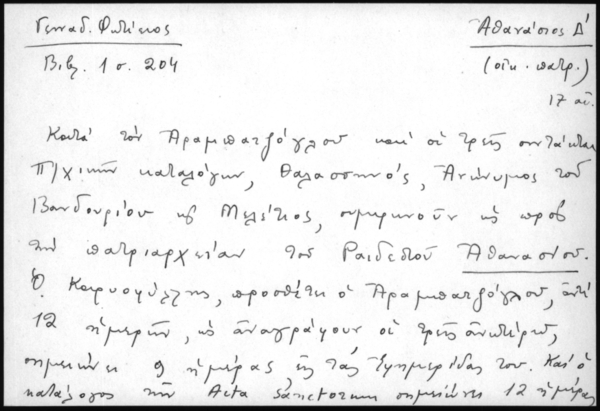 Γενναδ. Φωτίειος
Ἀθανάσιος Δ'
Βιβλ. 1 σ. 204
(οἰκ. πατρ.)
17 αἰ.
Κατά τόν Ἀραμπατζόγλου καί οἱ τρεῖς συντάκται
Π/χικῶν καταλόγων, Θαλασσηνός, Ἀνώνυμος τοῦ
Βανδουρίου κ Μελέτιος, συμφωνοῦν ὡς πρός
τήν πατριαρχείαν τοῦ Ραιδεστοῦ Ἀθανασίου.
Ὁ Καρυοφύλλης, προσθέτει ὁ Ἀραμπατζόγλου, ἀντί
12 ἡμερῶν, ὡς ἀναγράφουν οἱ τρεῖς ἀνωτέρω,
σημειώνει 9 ἡμέρας εἰς τάς Ἐφημερίδας του. Καί ὁ
κατάλογος τῶν Acta sanctorum σημειώνει 12 ἡμέρας